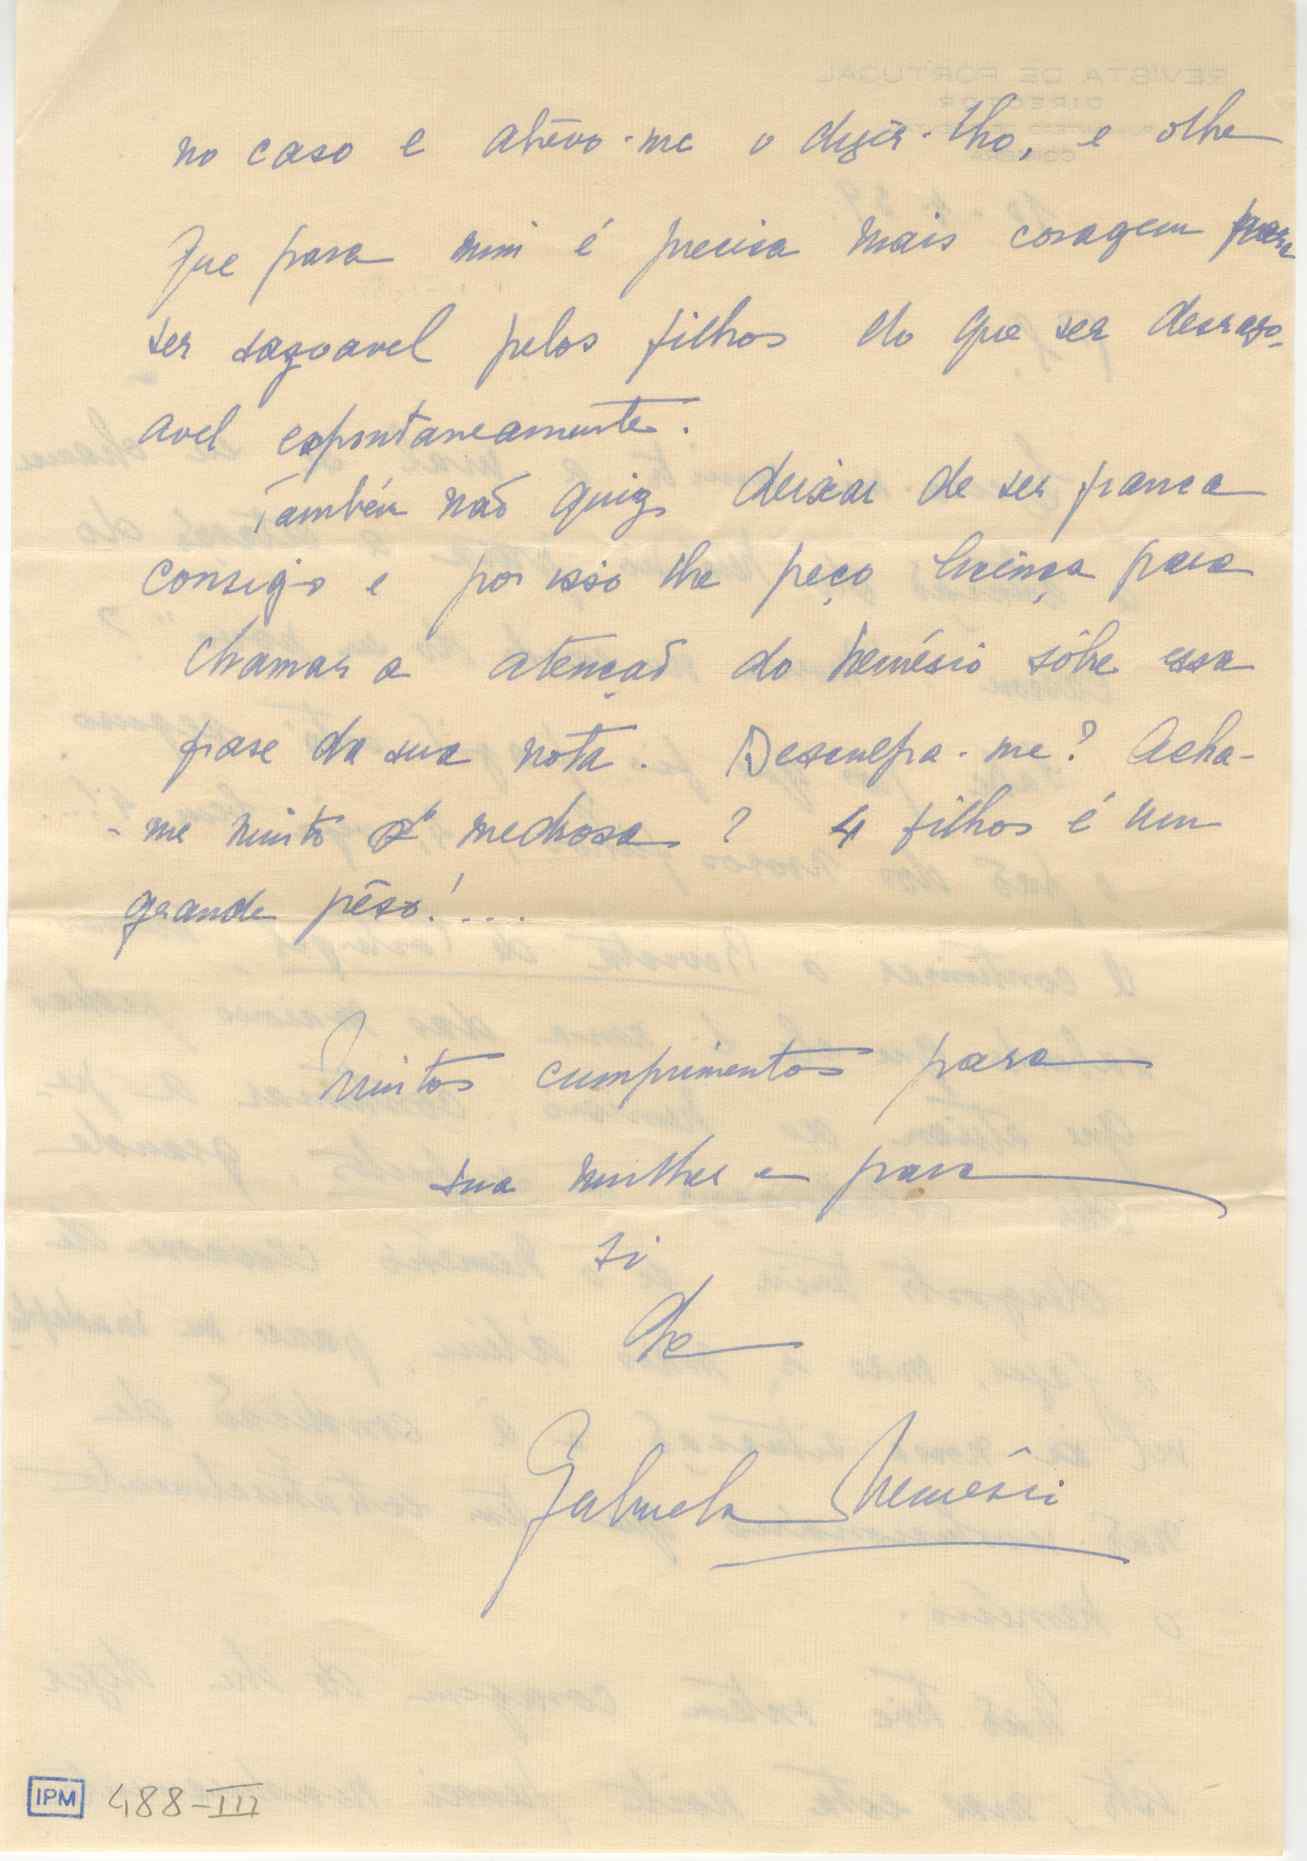 no caso e atrévo-me a dizer-lho, e olhe
que para mim é precisa mais coragem para
ser razoavel pelos filhos do que ser desrazo-
avel espontaneamente.
Também não quiz deixar de ser franca
consigo e por isso lhe peço licença para
chamar a atenção do Nemésio sôbre essa
frase da sua nota. Desculpa-me? Acha-
-me muito medrosa? 4 filhos é um
grande pêso!....
Muitos cumprimentos para
sua mulher e para
si
de
Gabriela Nemésio
IPM 488-III